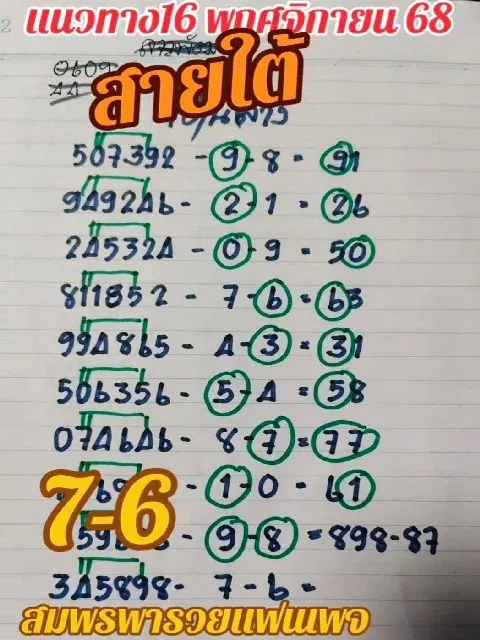 แนวทาง16 พฤศจิกายน 68
0609
สายใต้
507392 - 9 - 8 = 91
949246 - 2 - 1 = 26
245324 - 0 - 9 = 50
811852 - 7 - 6 = 63
994865 - 4 - 3 = 31
506356 - 5 - 4 = 58
074646 - 8 - 7 = 77
- 1 - 0 = 61
7-6
- 9 - 8 = 898-87
345898 - 7 - 6 =
สมพรพารวยแฟนเพจ